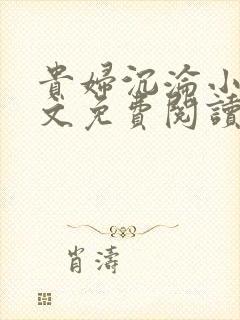 貴婦沉淪小
文免費閱讀
肖濤